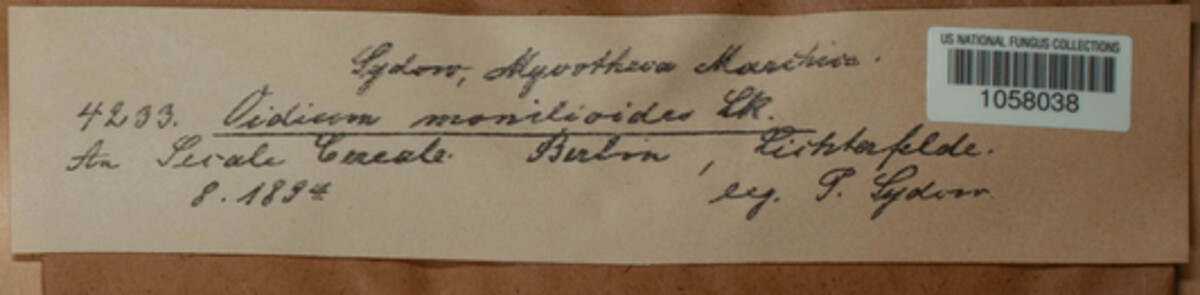 Sydow, Mycotheca Marchica.
US NATIONAL FUNGUS COLLECTIONS
1058038
4233. Oidium monilioides Lk.
An Secale Cereale. Berlin, Lichterfelde.
8. 1894 leg. P. Sydow.